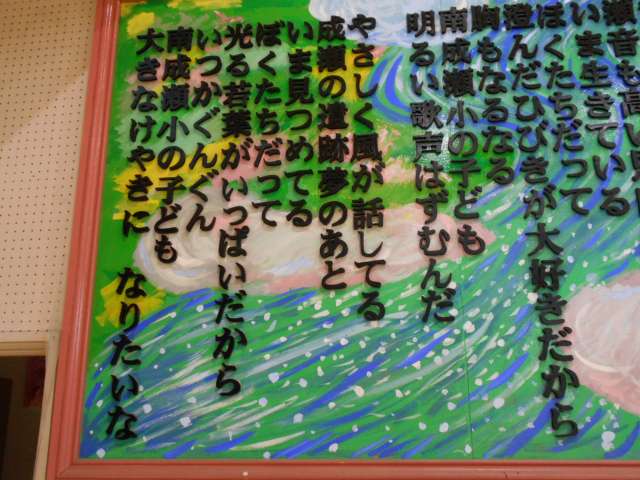 瀬音も高い
いま生きている
ぼくたちだって
澄んだひびきが大好きだから
胸もなるなる
南成瀬小の子ども
明るい歌声はずむんだ
やさしく風が話してる
成瀬の遺跡夢のあと
いま見つめてる
ぼくたちだって
光る若葉がいっぱいだから
いつかぐんぐん
南成瀬小の子ども
大きなけやきに なりたいな